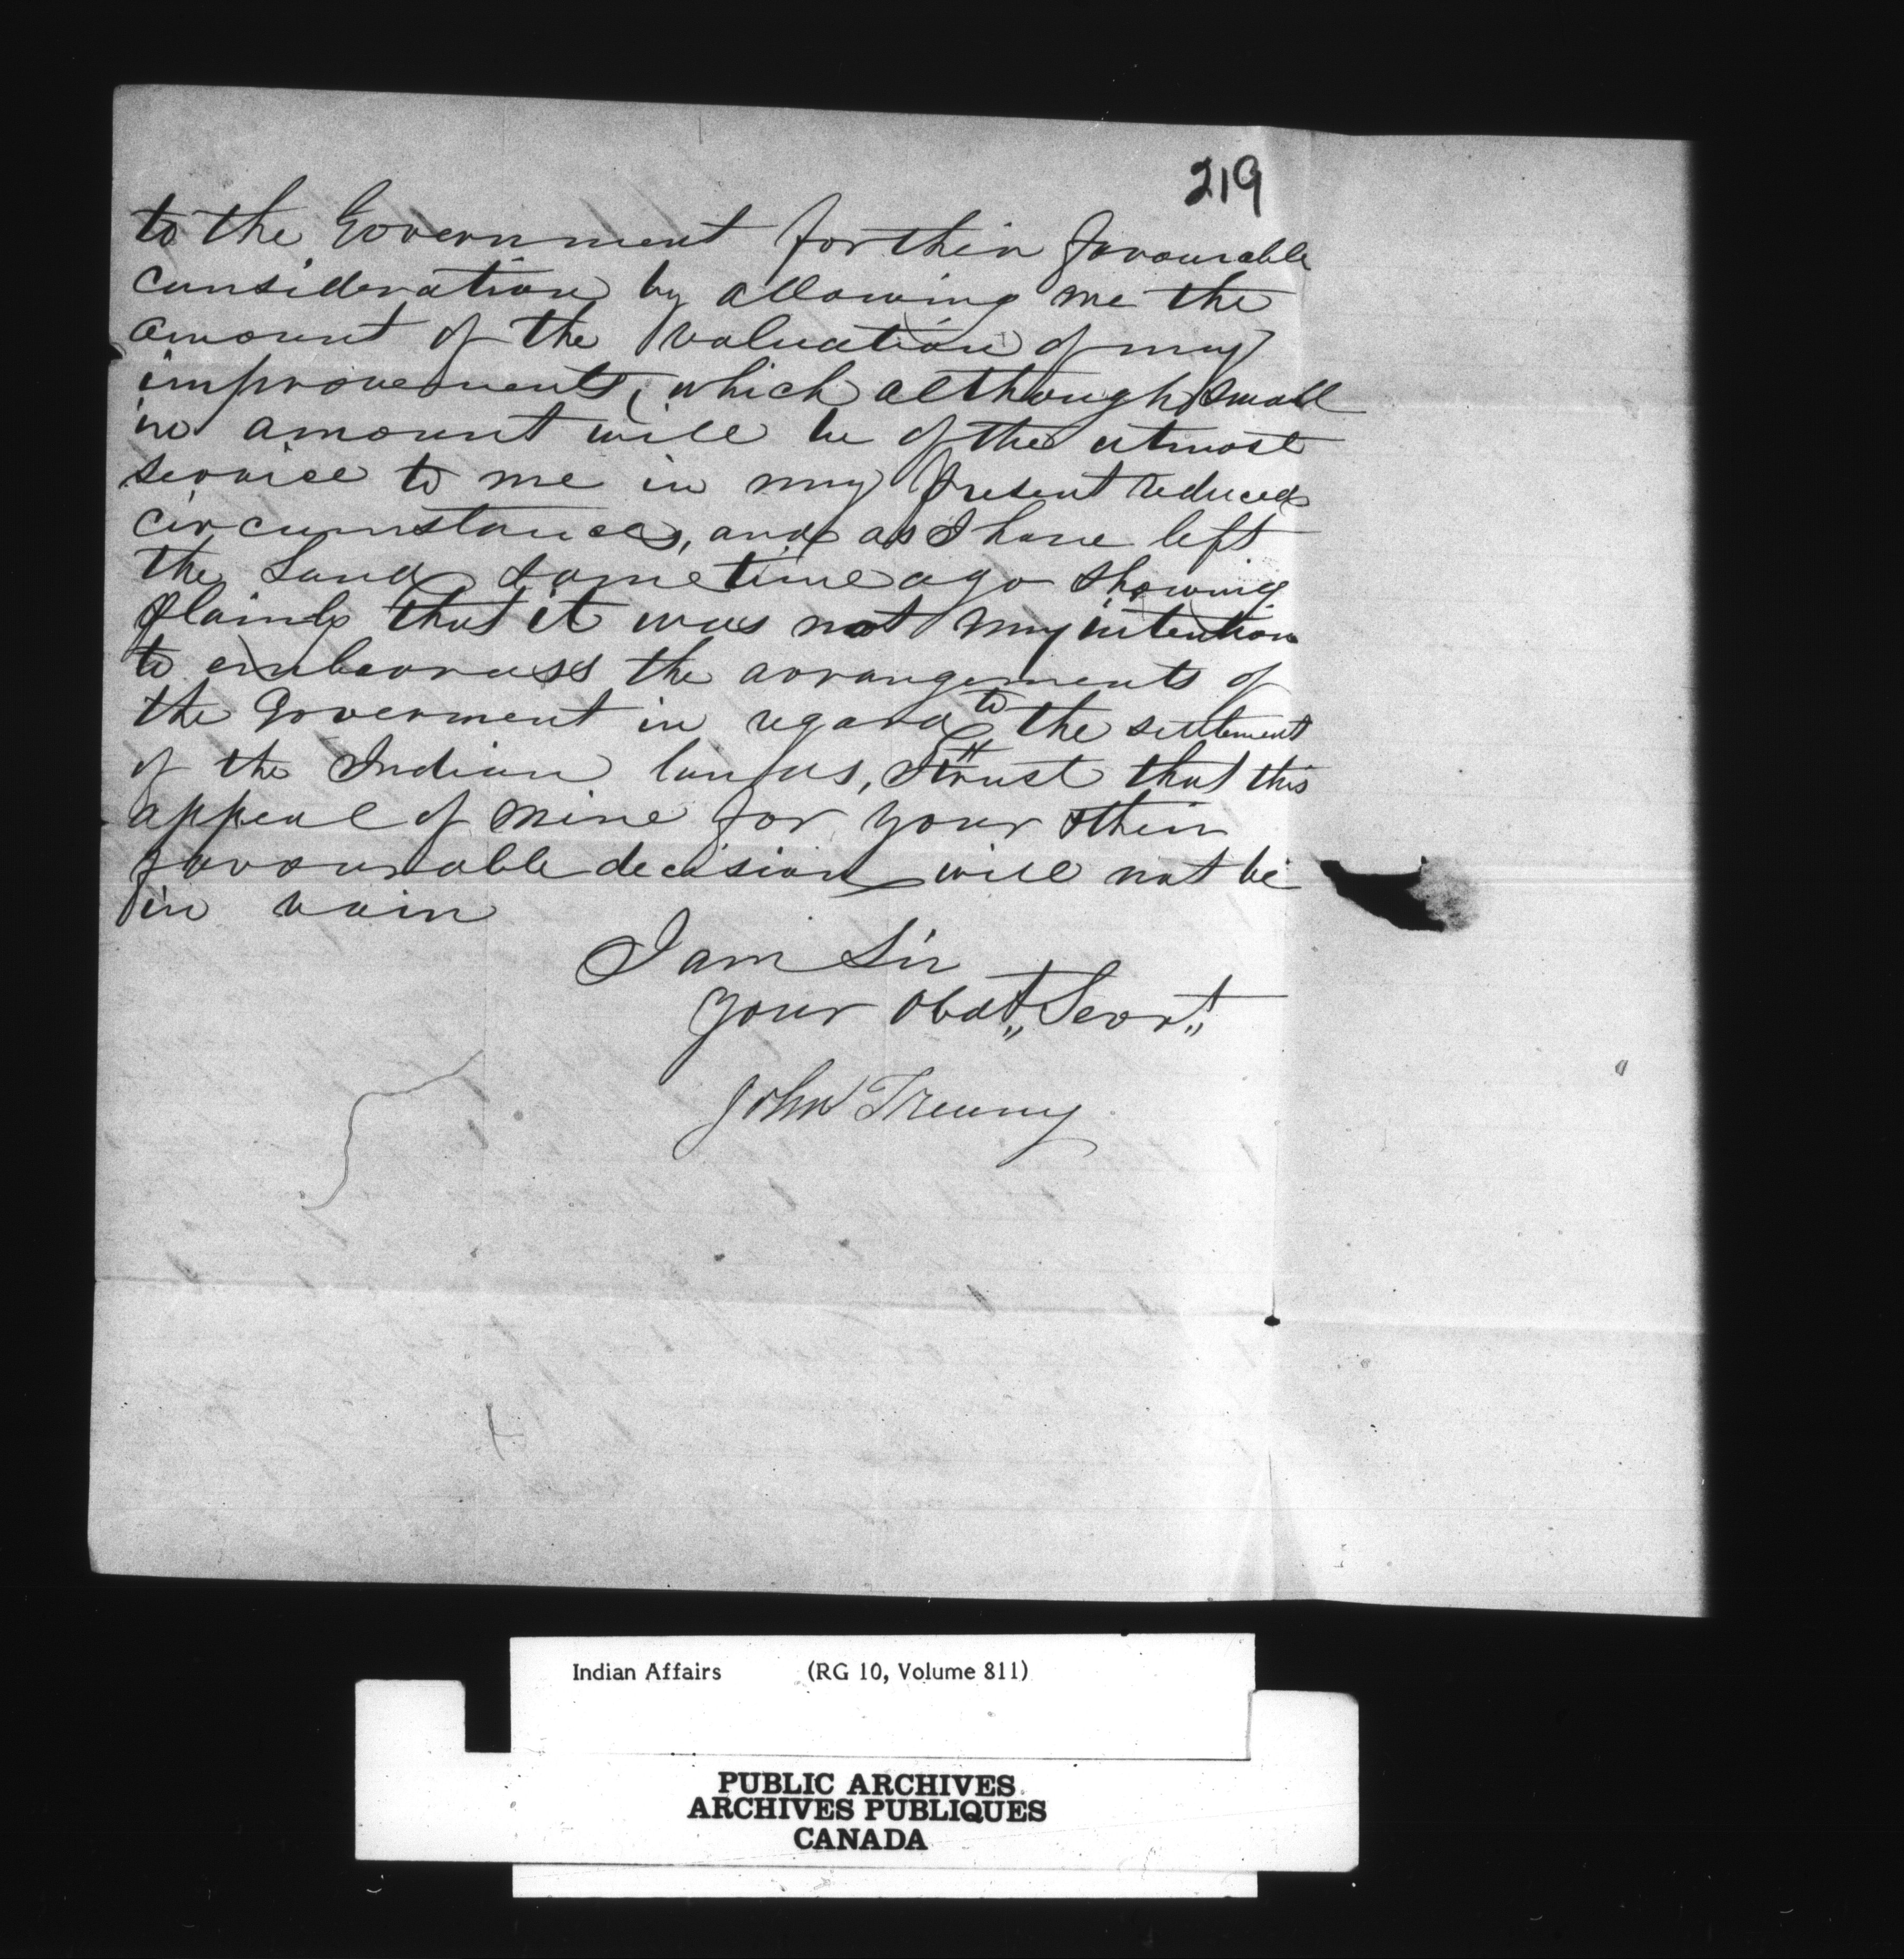 219
to the Government for their favourable
consideration by allowing me the
amount of the valuation of my
improvements, which although small
in amount will be of the utmost
service to me in my present reduced
circumstances, and as I have left
the Land sometime ago showing
plainly that it was not my intention
to embarrass the arrangements of
the Goverment in regard to the settlement
of the Indian lands, I trust that this
appeal of mine for your & their
favourable decision will not be
in vain
I am Sir
your Obdt,, Servt,,
John
Indian Affairs (RG 10, Volume 811)
PUBLIC ARCHIVES
ARCHIVES PUBLIQUES
CANADA